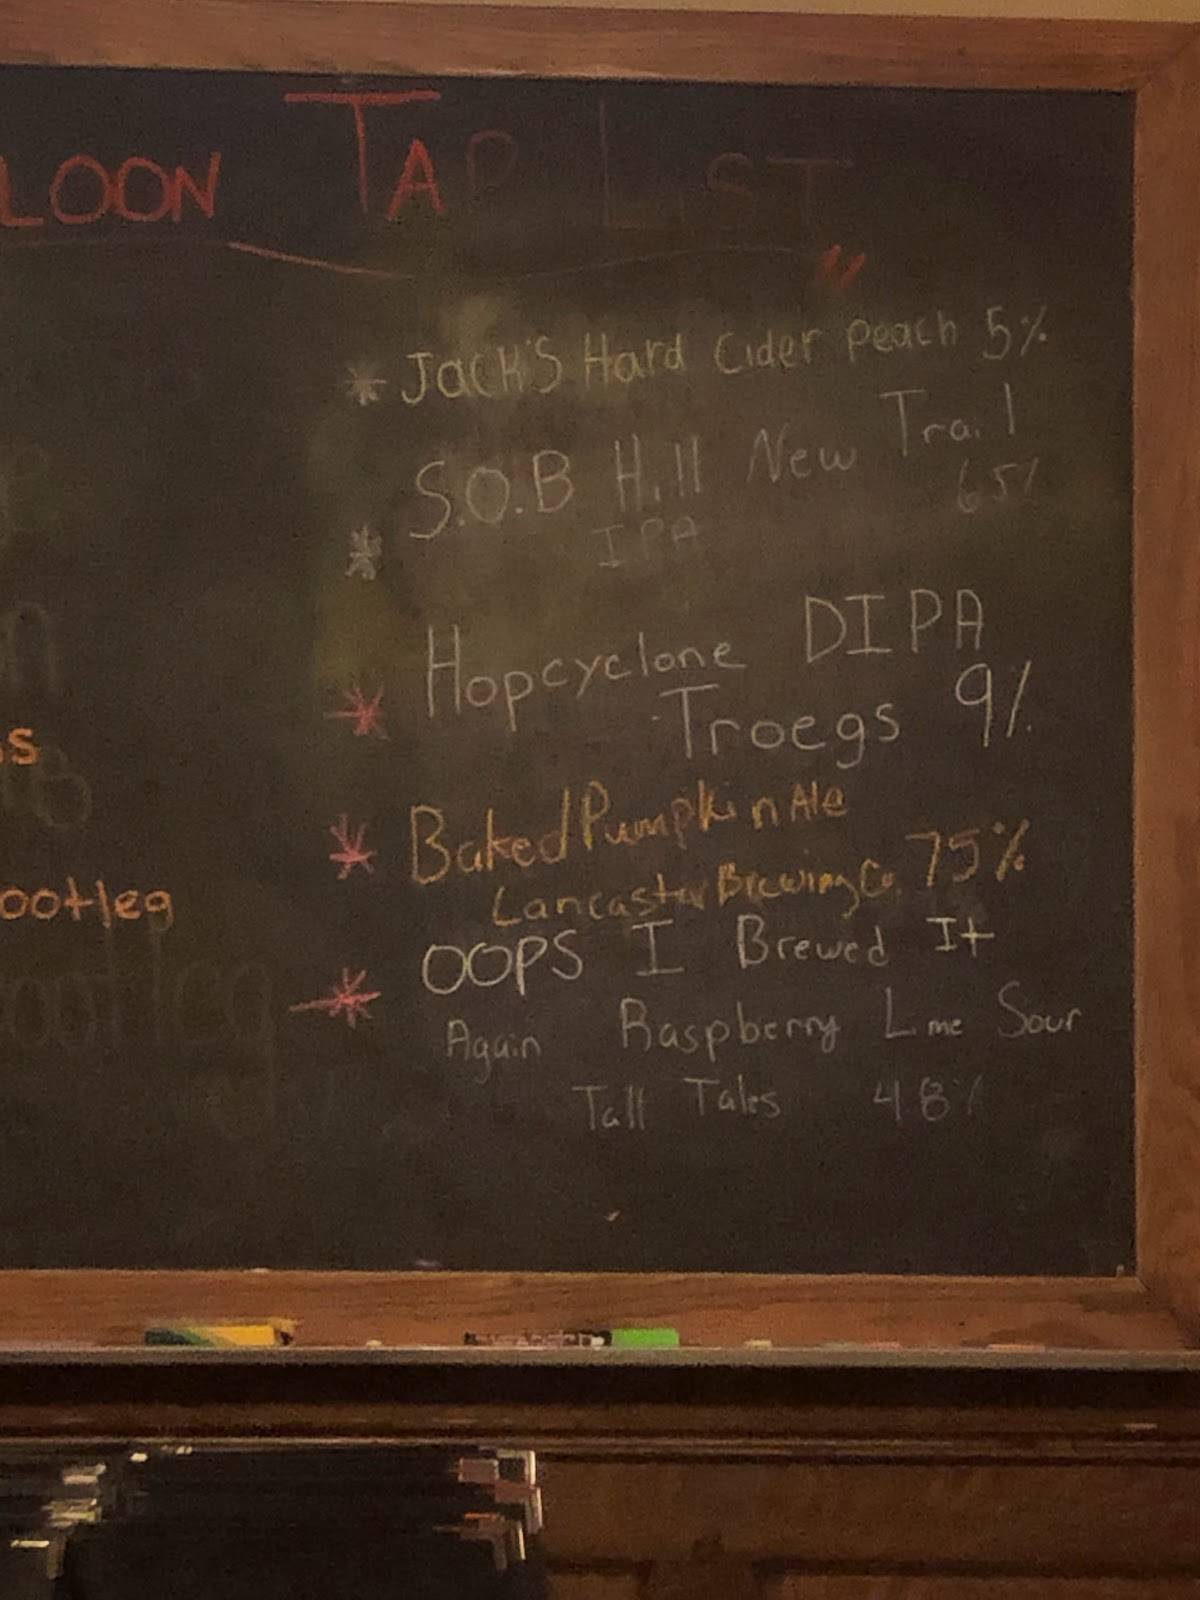 LOON TAP LIST
* Jack's Hard Cider Peach 5%
S.O.B Hill New Trail
* IPA 6.5%
Hopcyclone DIPA
* Troegs 9%
* Baked Pumpkin Ale
Lancaster Brewing Co. 7.5%
OOPS I Brewed It
* Again Raspberry Lime Sour
Tall Tales 4.8%
s
ootleg